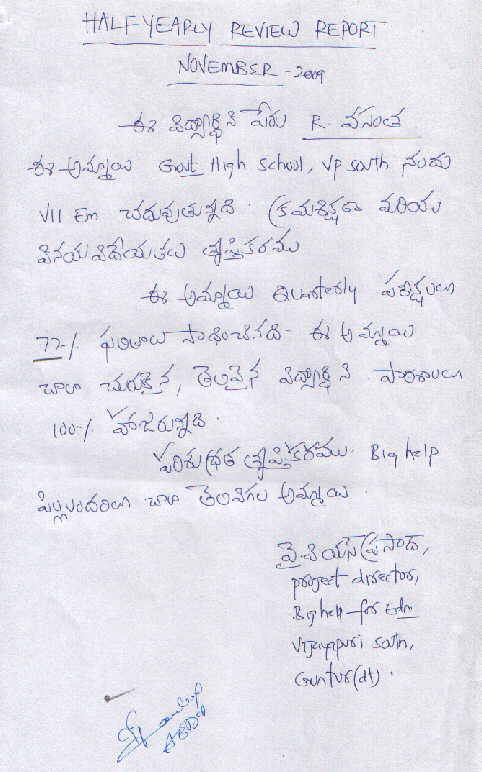 HALF YEARLY REVIEW REPORT
NOVEMBER - 2009
ఈ విద్యార్థిని పేరు R. వసంత
ఈ అమ్మాయి Govt High School, VP South నందు
VII Em చదువుతున్నది. క్రమశిక్షణ మరియు
వినయవిదేయతలు తృప్తికరము
ఈ అమ్మాయి Quarterly పరీక్షలలో
77% ఫలితాలు సాధించినది. ఈ అమ్మాయి
చాలా చురుకైన, తెలివైన విద్యార్థిని పాఠశాలకు
100% హాజరున్నది.
పరిశుభ్రత తృప్తికరము. Big help
పిల్లలందరిలో చాలా తెలివిగల అమ్మాయి.
వై.వి.యస్.ప్రసాద్,
project director,
Big help for Edn
Vijayapuri South,
Guntur(dt).